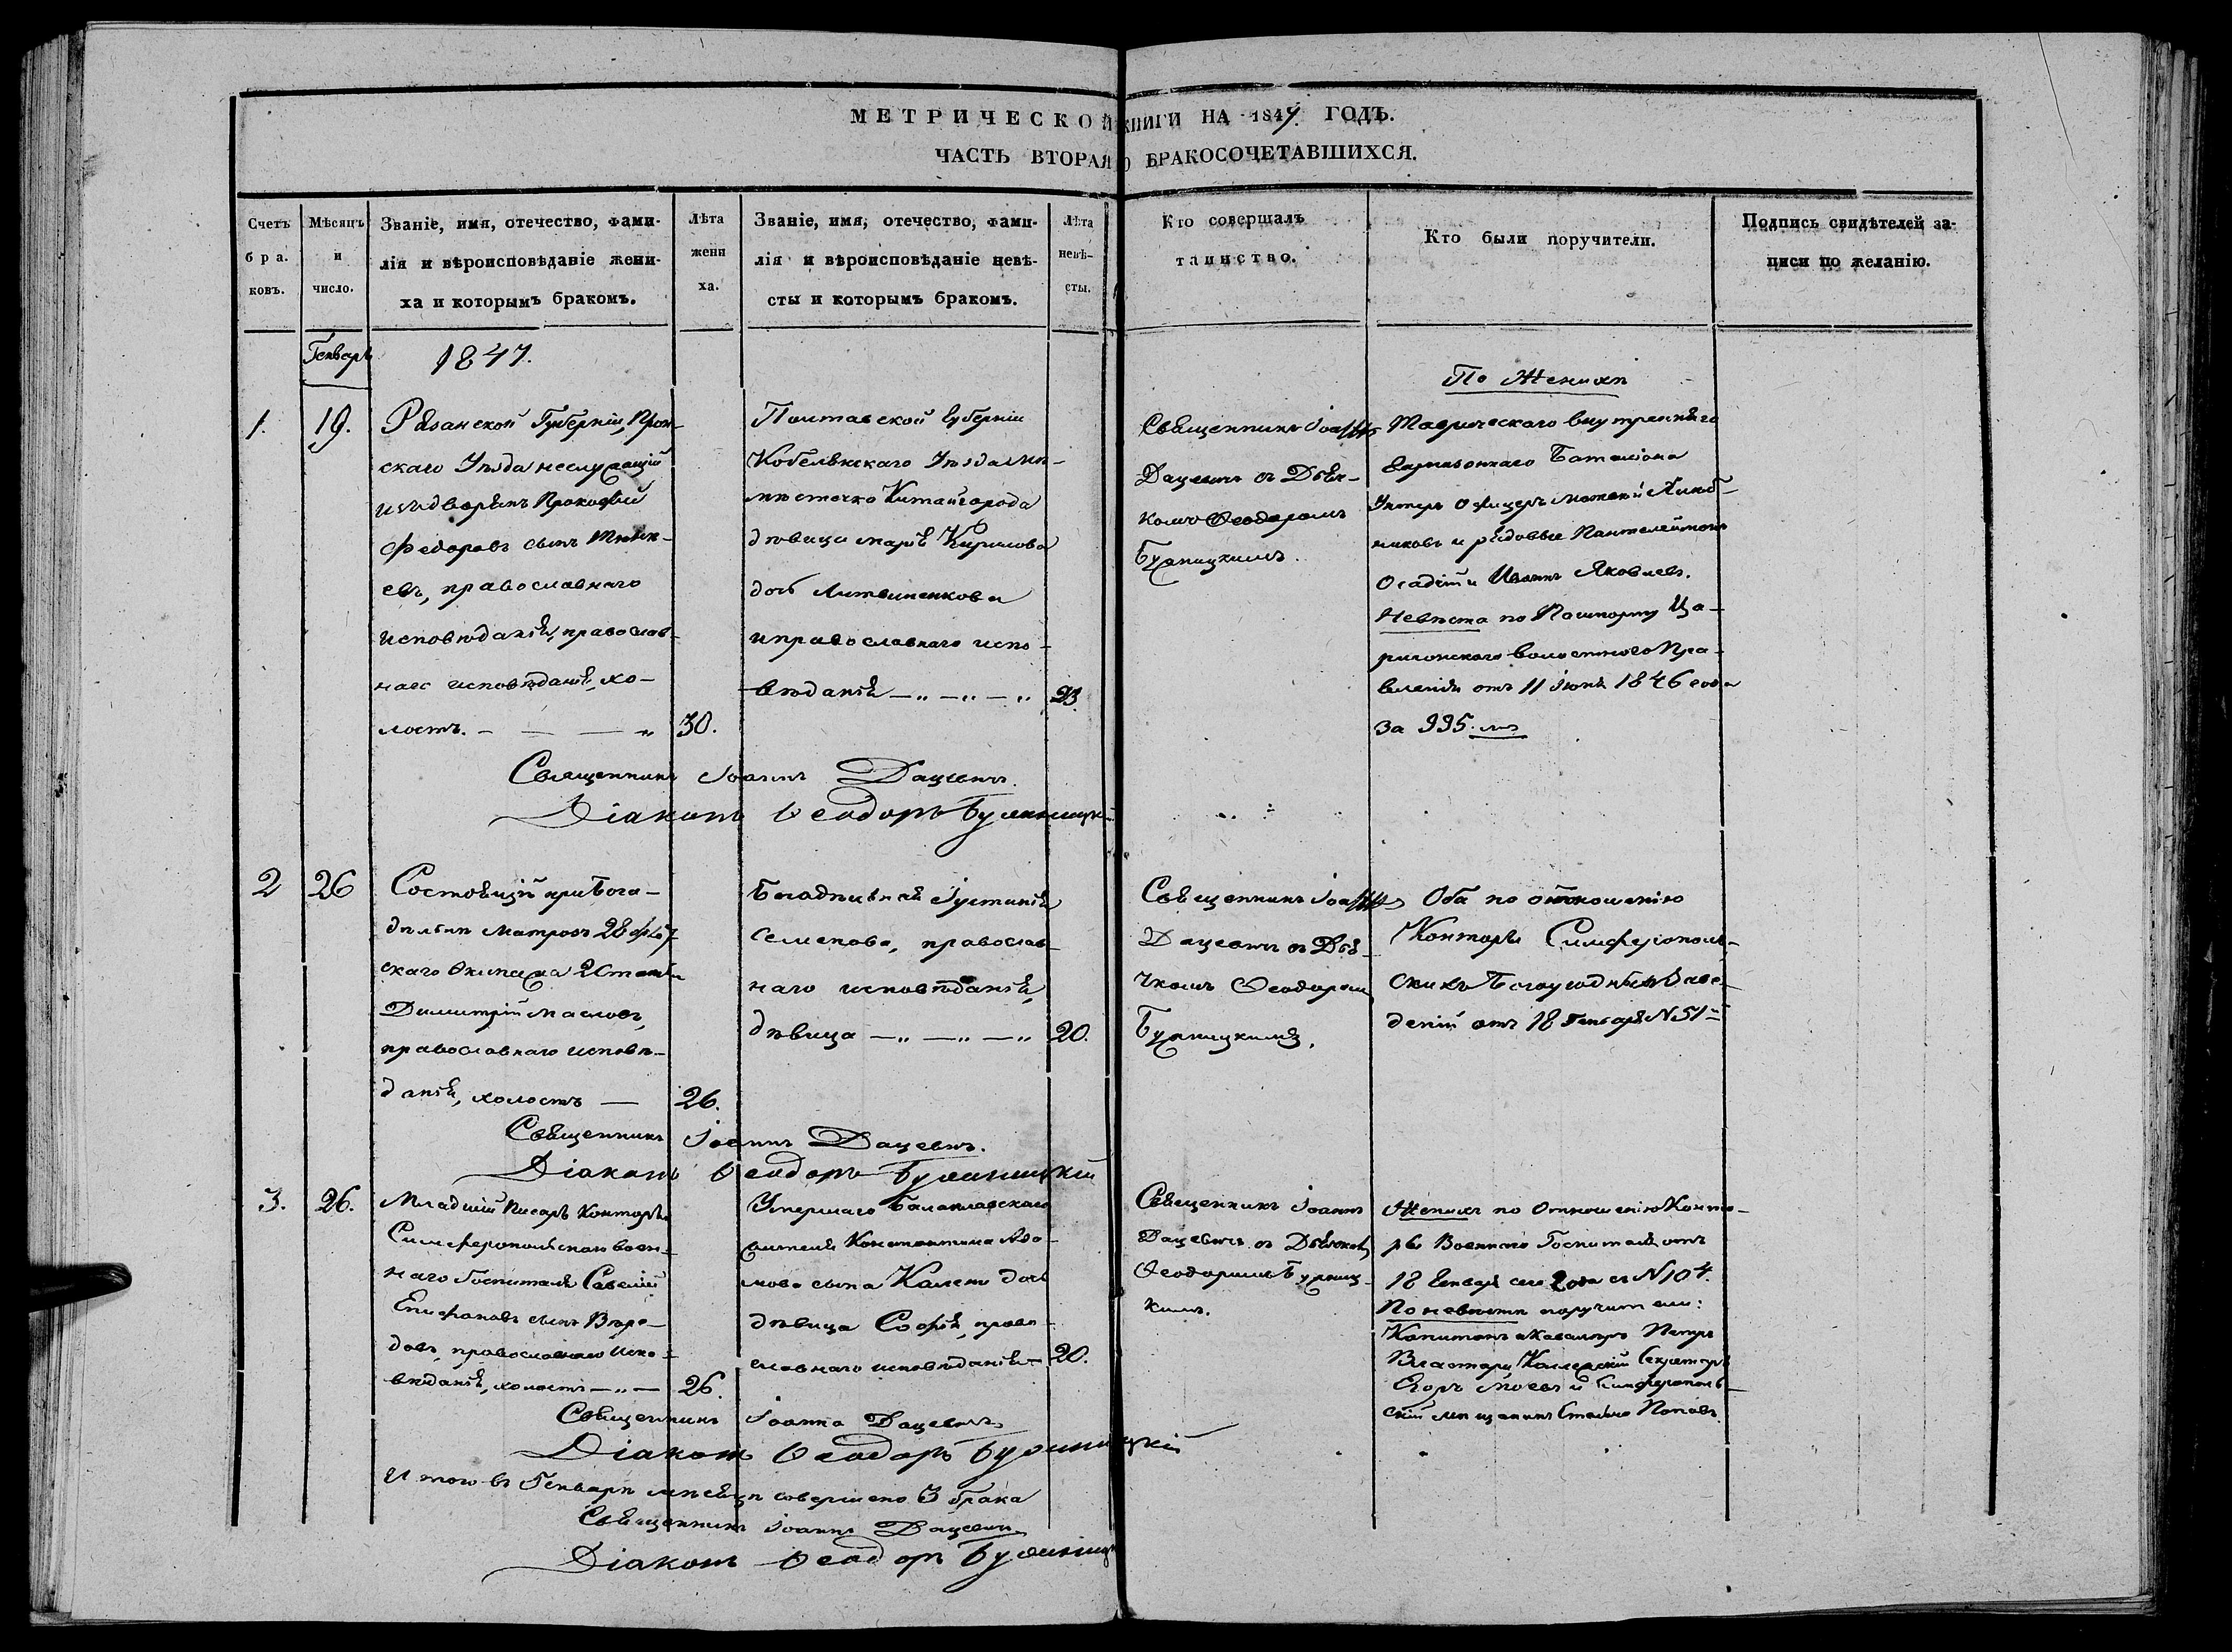 МЕТРИЧЕСКОЙ КНИГИ НА 1847 ГОДЪ.
ЧАСТЬ ВТОРАЯ О БРАКОСОЧЕТАВШИХСЯ.
Счетъ
бра.
ковъ.
Мѣсяцъ
и
число.
Званіе, имя, отечество, фами-
лія и вѣроисповѣданіе жени-
ха и которымъ бракомъ.
Лѣта
жени
ха.
Званіе, имя, отечество, фами-
лія и вѣроисповѣданіе невѣ-
сты и которымъ бракомъ.
Лѣта
невѣ-
сты.
Кто совершалъ
таинство.
Кто были поручители.
Подпись свидѣтелей за-
писи по желанію.
Генварь
1847.
1.
19.
Рязанской Губерніи, Прон-
скаго Уѣзда неслужащій
изъ дворянъ Прокофій
Федоровъ сынъ
евъ, православнаго
исповѣданія, православ-
наго исповѣданія, хо-
лостъ. — — — „
30.
Полтавской Губерніи
Кобеляцкаго Уѣзда мѣ-
мѣстечка Китайгорода
дѣвица Марія Кирилова
дочь Литвиненкова
и православнаго испо-
вѣданія — „ — „ — „
23.
Священникъ Іоаннъ
Дацевичъ съ Дьяч-
комъ Ѳеодоромъ
Буяницкимъ.
По Женихѣ
Таврическаго внутренняго
Гарнизоннаго Баталіона
Унтеръ Офицеръ
никовъ и рядовые Пантелеймонъ
Осадчій и Иванъ Яковлевъ.
Невѣста по Пашпорту Ца-
ричанскаго волостнаго Пра-
вленія отъ 11 Іюня 1846 года
за 995. №
Священникъ Іоаннъ Дацевичъ
Діаконъ Ѳеодоръ Буяницкі
2
26
Состоящій при Бога-
дѣльнѣ Матросъ 28 флот-
скаго Экипажа 2 статьи
Димитрій Масловъ,
православнаго исповѣ-
данія, холостъ —
26.
Богадѣльная Іустинія
Семенова, православ-
наго исповѣданія,
дѣвица — „ — „ — „
20.
Священникъ Іоаннъ
Дацевичъ съ Дья-
чкомъ Ѳеодоромъ
Буяницкимъ.
Оба по отношенію
Конторы Симферополь-
скихъ Богоугодныхъ Заве-
деній отъ 18 Генваря № 51
Священникъ Іоаннъ Дацевичъ.
Діаконъ Ѳеодоръ Буяницкій
3.
26.
Младшій Писарь Конторы
Симферопольскаго воен-
наго Госпиталя Савелій
Епифановъ сынъ
довъ, православнаго испо-
вѣданія, холостъ — „ —
26.
Умершаго Балаклавскаго
жителя Константина Ада-
мова сына дочь
дѣвица Софія, право-
славнаго исповѣданія —
20.
Священникъ Іоаннъ
Дацевичъ съ Дьячкомъ
Ѳеодоромъ Буяниц-
кимъ.
Женихъ по Отношенію Конто-
ры Военнаго Госпиталя отъ
18 Генваря сего года за № 104.
По невѣстѣ поручители:
Капитанъ и Кавалеръ Петръ
Коллежскій Секретарь
Егоръ и Симферополь-
скій мѣщанинъ Поповъ
Священникъ Іоаннъ Дацевичъ
Діаконъ Ѳеодоръ Буяницкій
Итого въ Генварѣ мѣсяцѣ совершено 3 брака
Священникъ Іоаннъ Дацевичъ
Діаконъ Ѳеодоръ Буяницк